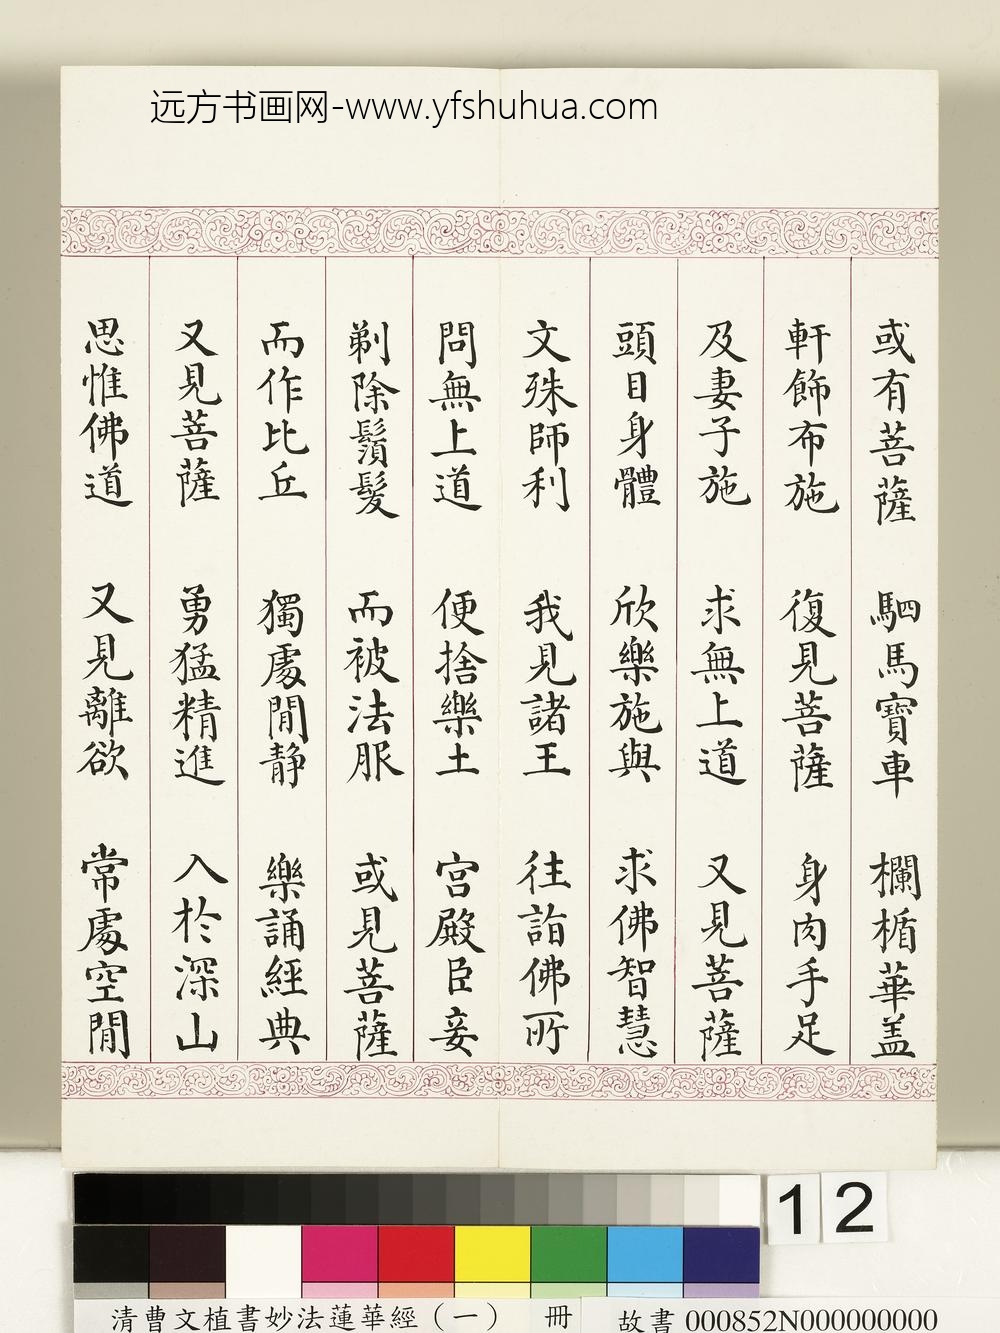 远方书画网-www.yfshuhua.com
或有菩薩 駟馬寶車 欄楯華盖
軒飾布施 復見菩薩 身肉手足
及妻子施 求無上道 又見菩薩
頭目身體 欣樂施與 求佛智慧
文殊師利 我見諸王 往詣佛所
問無上道 便捨樂土 宮殿臣妾
剃除鬚髮 而被法服 或見菩薩
而作比丘 獨處閒静 樂誦經典
又見菩薩 勇猛精進 入於深山
思惟佛道 又見離欲 常處空閒
12
清曹文植書妙法蓮華經（一） 冊 故書 000852N000000000